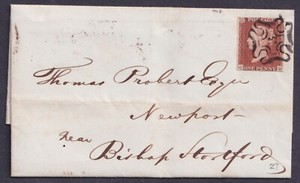 Thomas Probert Esqr
Newport
near
Bishop Stortford
ONE PENNY